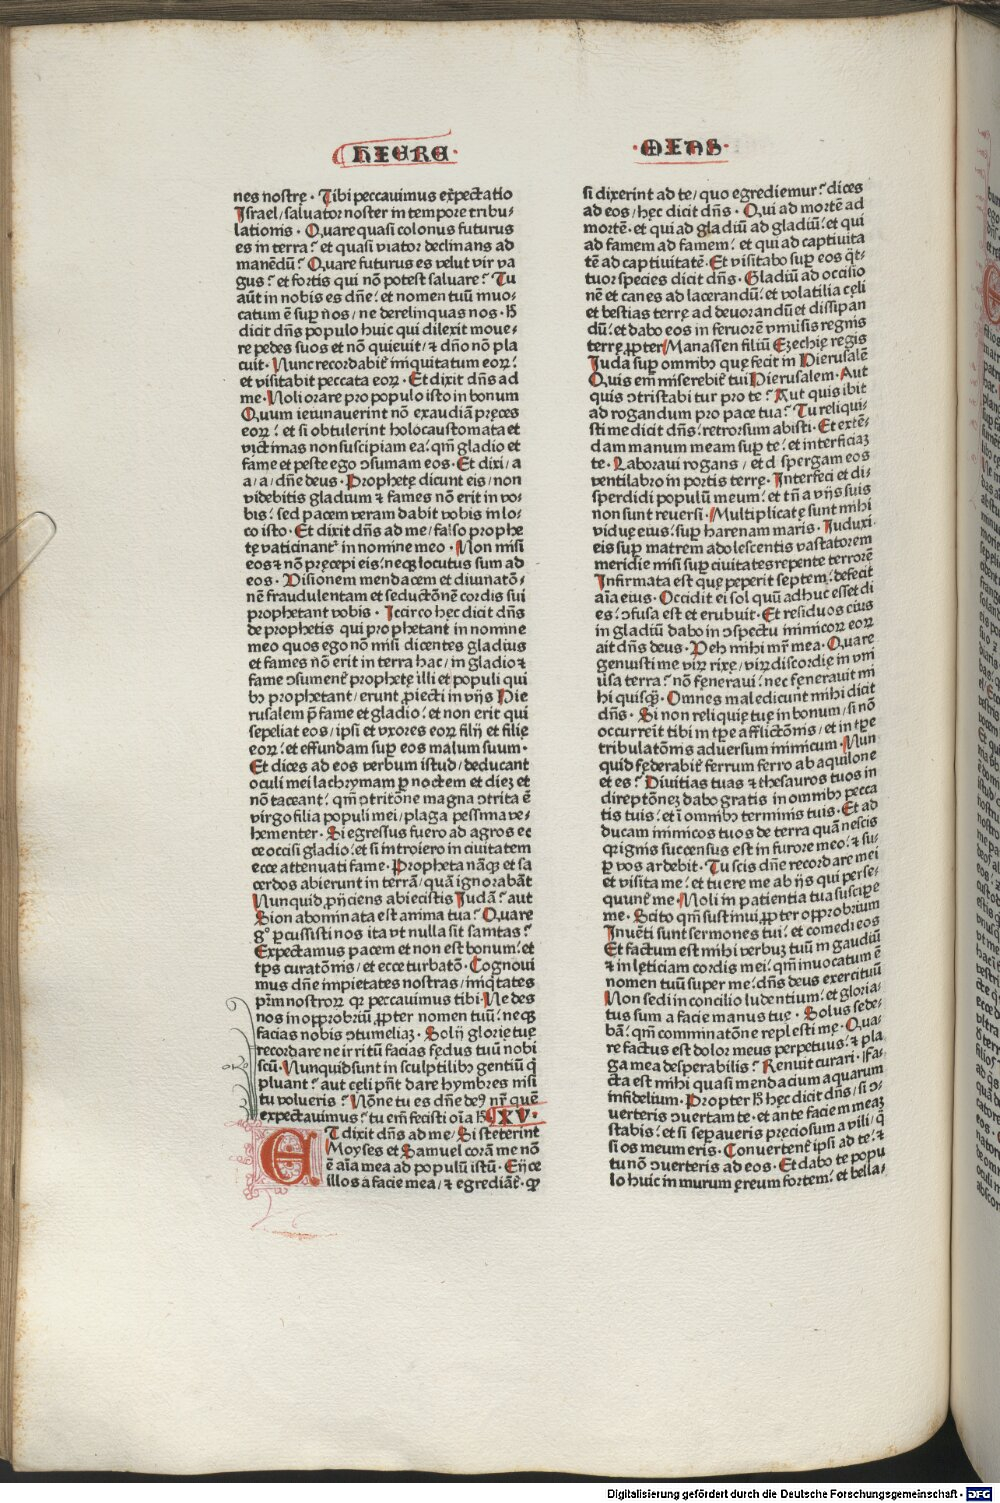 HIERE
MIAS
nes nostrę . Tibi peccauimus exspectatio
Israel / saluator noster in tempore tribu⸗
lationis . Quare quasi colonus futurus
es in terra? et quasi viator declinans ad
manẽdũ? Quare futurus es velut vir va
gus? et fortis qui nõ potest saluare? Tu
aũt in nobis es dñe: et nomen tuũ inuo⸗
catum ẽ sup nos / ne derelinquas nos . Hꝭ
dicit dñs populo huic qui dilexit moue⸗
re pedes suos et nõ quieuit / ⁊ dño nõ pla
cuit . Nunc recordabit̃ iniquitatum eoꝝ:
et visitabit peccata eoꝝ . Et dixit dñs ad
me . Noli orare pro populo isto in bonum
Quum ieiunauerint nõ exaudiã pręces
eoꝝ: et si obtulerint holocaustomata et
victimas non suscipiam ea: qm̃ gladio et
fame et peste ego ↄsumam eos . Et dixi / a
a / a / dñe deus . Prophetę dicunt eis / non
videbitis gladium ⁊ fames nõ erit in vo⸗
bis: sed pacem veram dabit vobis in lo⸗
co isto . Et dixit dñs ad me / falso prophe
tę vaticinant᷑ in nomine meo . Non misi
eos ⁊ nõ pręcepi eis: necꝫ locutus sum ad
eos . Visionem mendacem et diuinatõ⸗
nẽ fraudulentam et seductõnẽ cordis sui
prophetant vobis . Icirco hęc dicit dñs
de prophetis qui prophetant in nomine
meo quos ego nõ misi dicentes gladius
et fames nõ erit in terra hac / in gladio ⁊
fame ↄsument̃ prophetę illi et populi qui
bꝫ prophetant / erunt ꝓiecti in vijs Hie
rusalem p̃ fame et gladio: et non erit qui
sepeliat eos / ipsi et vxores eoꝝ filij et filię
eoꝝ: et effundam sup eos malum suum .
Et dices ad eos verbum istud / deducant
oculi mei lachrymam ꝑ noctem et dieꝫ et
nõ taceant: qm̃ ↄtritõne magna ↄtrita ẽ
virgo filia populi mei / plaga pessima ve⸗
hementer . Si egressus fuero ad agros ec
ce occisi gladio: et si introiero in ciuitatem
ecce attenuati fame . Propheta nãqꝫ et sa
cerdos abierunt in terrã / quã ignorabãt
Nunquid ꝓijciens abiecistis Iudã? aut
Sion abominata est anima tua? Quare
g° ꝑcussisti nos ita vt nulla sit sanitas?
Expectamus pacem et non est bonum: et
tꝑs curatõnis / et ecce turbatõ . Cognoui
mus dñe impietates nostras / iniq̃tates
pr̃m nostroꝝ qꝛ peccauimus tibi . Ne des
nos in oꝓbriũ ꝓpter nomen tuũ: necꝫ
facias nobis ↄtumeliaꝫ . Solij glorię tuę
recordare ne irritũ facias fędus tuũ nobi
scũ . Nunquid sunt in sculptilibꝫ gentiũ q̃
pluant? aut cęli pñt dare hymbres nisi
tu volueris? Nõne tu es dñe deꝰ nr̃ quẽ
expectauimus? tu em̃ fecisti oĩa hꝭ XV.
ET dixit dñs ad me / Si steterint
Moyses et Samuel corã me nõ
ẽ aĩa mea ad populũ istũ . Eijce
illos a facie mea / ⁊ egrediãt̃ . qꝛ
si dixerint ad te / quo egrediemur? dices
ad eos / hęc dicit dñs . Qui ad mortẽ ad
mortẽ . et qui ad gladiũ ad gladiũ: et qui
ad famem ad famem: et qui ad captiuita
tẽ ad captiuitatẽ . Et visitabo sup eos q̃t⸗
tuor species dicit dñs . Gladiũ ad occisio
nẽ et canes ad lacerandũ: et volatilia cęli
et bestias terrę ad deuorandũ et dissipan
dũ: et dabo eos in feruorẽ vniuersis regnis
terrę ꝓpter Manassen filiũ Ezechię regis
Iuda sup omnibꝫ quę fecit in Hierusalẽ
Quis em̃ miserebit̃ tui Hierusalem . Aut
quis ↄtristabitur pro te? Aut quis ibit
ad rogandum pro pace tua? Tu reliqui⸗
sti me dicit dñs: retrorsum abisti . Et extẽ⸗
dam manum meam sup te: et interficiaꝫ
te . Laboraui rogans / et dispergam eos
ventilabro in portis terrę . Interfeci et di⸗
sperdidi populũ meum: et tñ a vijs suis
non sunt reuersi . Multiplicatę sunt mihi
viduę eius: sup harenam maris . Induxi
eis sup matrem adolescentis vastatorem
meridie misi sup ciuitates repente terrorẽ
Infirmata est quę peperit septem: defecit
aĩa eius . Occidit ei sol quũ adhuc esset di
es: ↄfusa est et erubuit . Et residuos eius
in gladiũ dabo in ↄspectu inimicoꝝ eoꝝ
ait dñs deus . Veh mihi mr̃ mea . Quare
genuisti me viꝝ rixę / viꝝ discordię in vni
uĩsa terra? nõ fęneraui: nec fęnerauit mi
hi quisqꝫ . Omnes maledicunt mihi dicit
dñs . Si non reliquię tuę in bonum / si nõ
occurreĩt tibi in tꝑe afflictõnis / et in tꝑe
tribulatõnis aduersum inimicum . Nun
quid fęderabit̃ ferrum ferro ab aquilone
et es? Diuitias tuas ⁊ thesauros tuos in
direptõneꝫ dabo gratis in omnibꝫ pecca
tis tuis: et ĩ omnibꝫ terminis tuis . Et ad
ducam inimicos tuos de terra quã nescis
qꝛ ignis succensus est in furore meo: ⁊ su⸗
ꝑ vos ardebit . Tu scis dñe recordare mei
et visita me: et tuere me ab ijs qui perse⸗
quunt̃ me . Noli in patientia tua suscipe
me . Scito qm̃ sustinui ꝓpter opprobrium
Inuẽti sunt sermones tui: et comedi eos
Et factum est mihi verbuꝫ tuũ in gaudiũ
⁊ in lęticiam cordis mei: qm̃ inuocatum ẽ
nomen tuũ super me: dñs deus exercituũ
Non sedi in concilio ludentium: et gloria⸗
tus sum a facie manus tuę . Solus sede⸗
bã: qm̃ comminatõne replesti me . Qua⸗
re factus est dolor meus perpetuus: ⁊ pla
ga mea desperabilis? Renuit curari . Fa⸗
cta est mihi quasi mendacium aquarum
infidelium . Propter hꝭ hęc dicit dñs / si ↄ⸗
uerteris ↄuertam te . et ante faciem meaꝫ
stabis: et si separaueris preciosum a vili / q̃
si os meum eris . Conuertent̃ ipsi ad te: ⁊
tu nõ ↄuerteris ad eos . Et dabo te popu
lo huic in murum ęreum fortem: et bella⸗
Digitalisierung gefördert durch die Deutsche Forschungsgemeinschaft - DFG